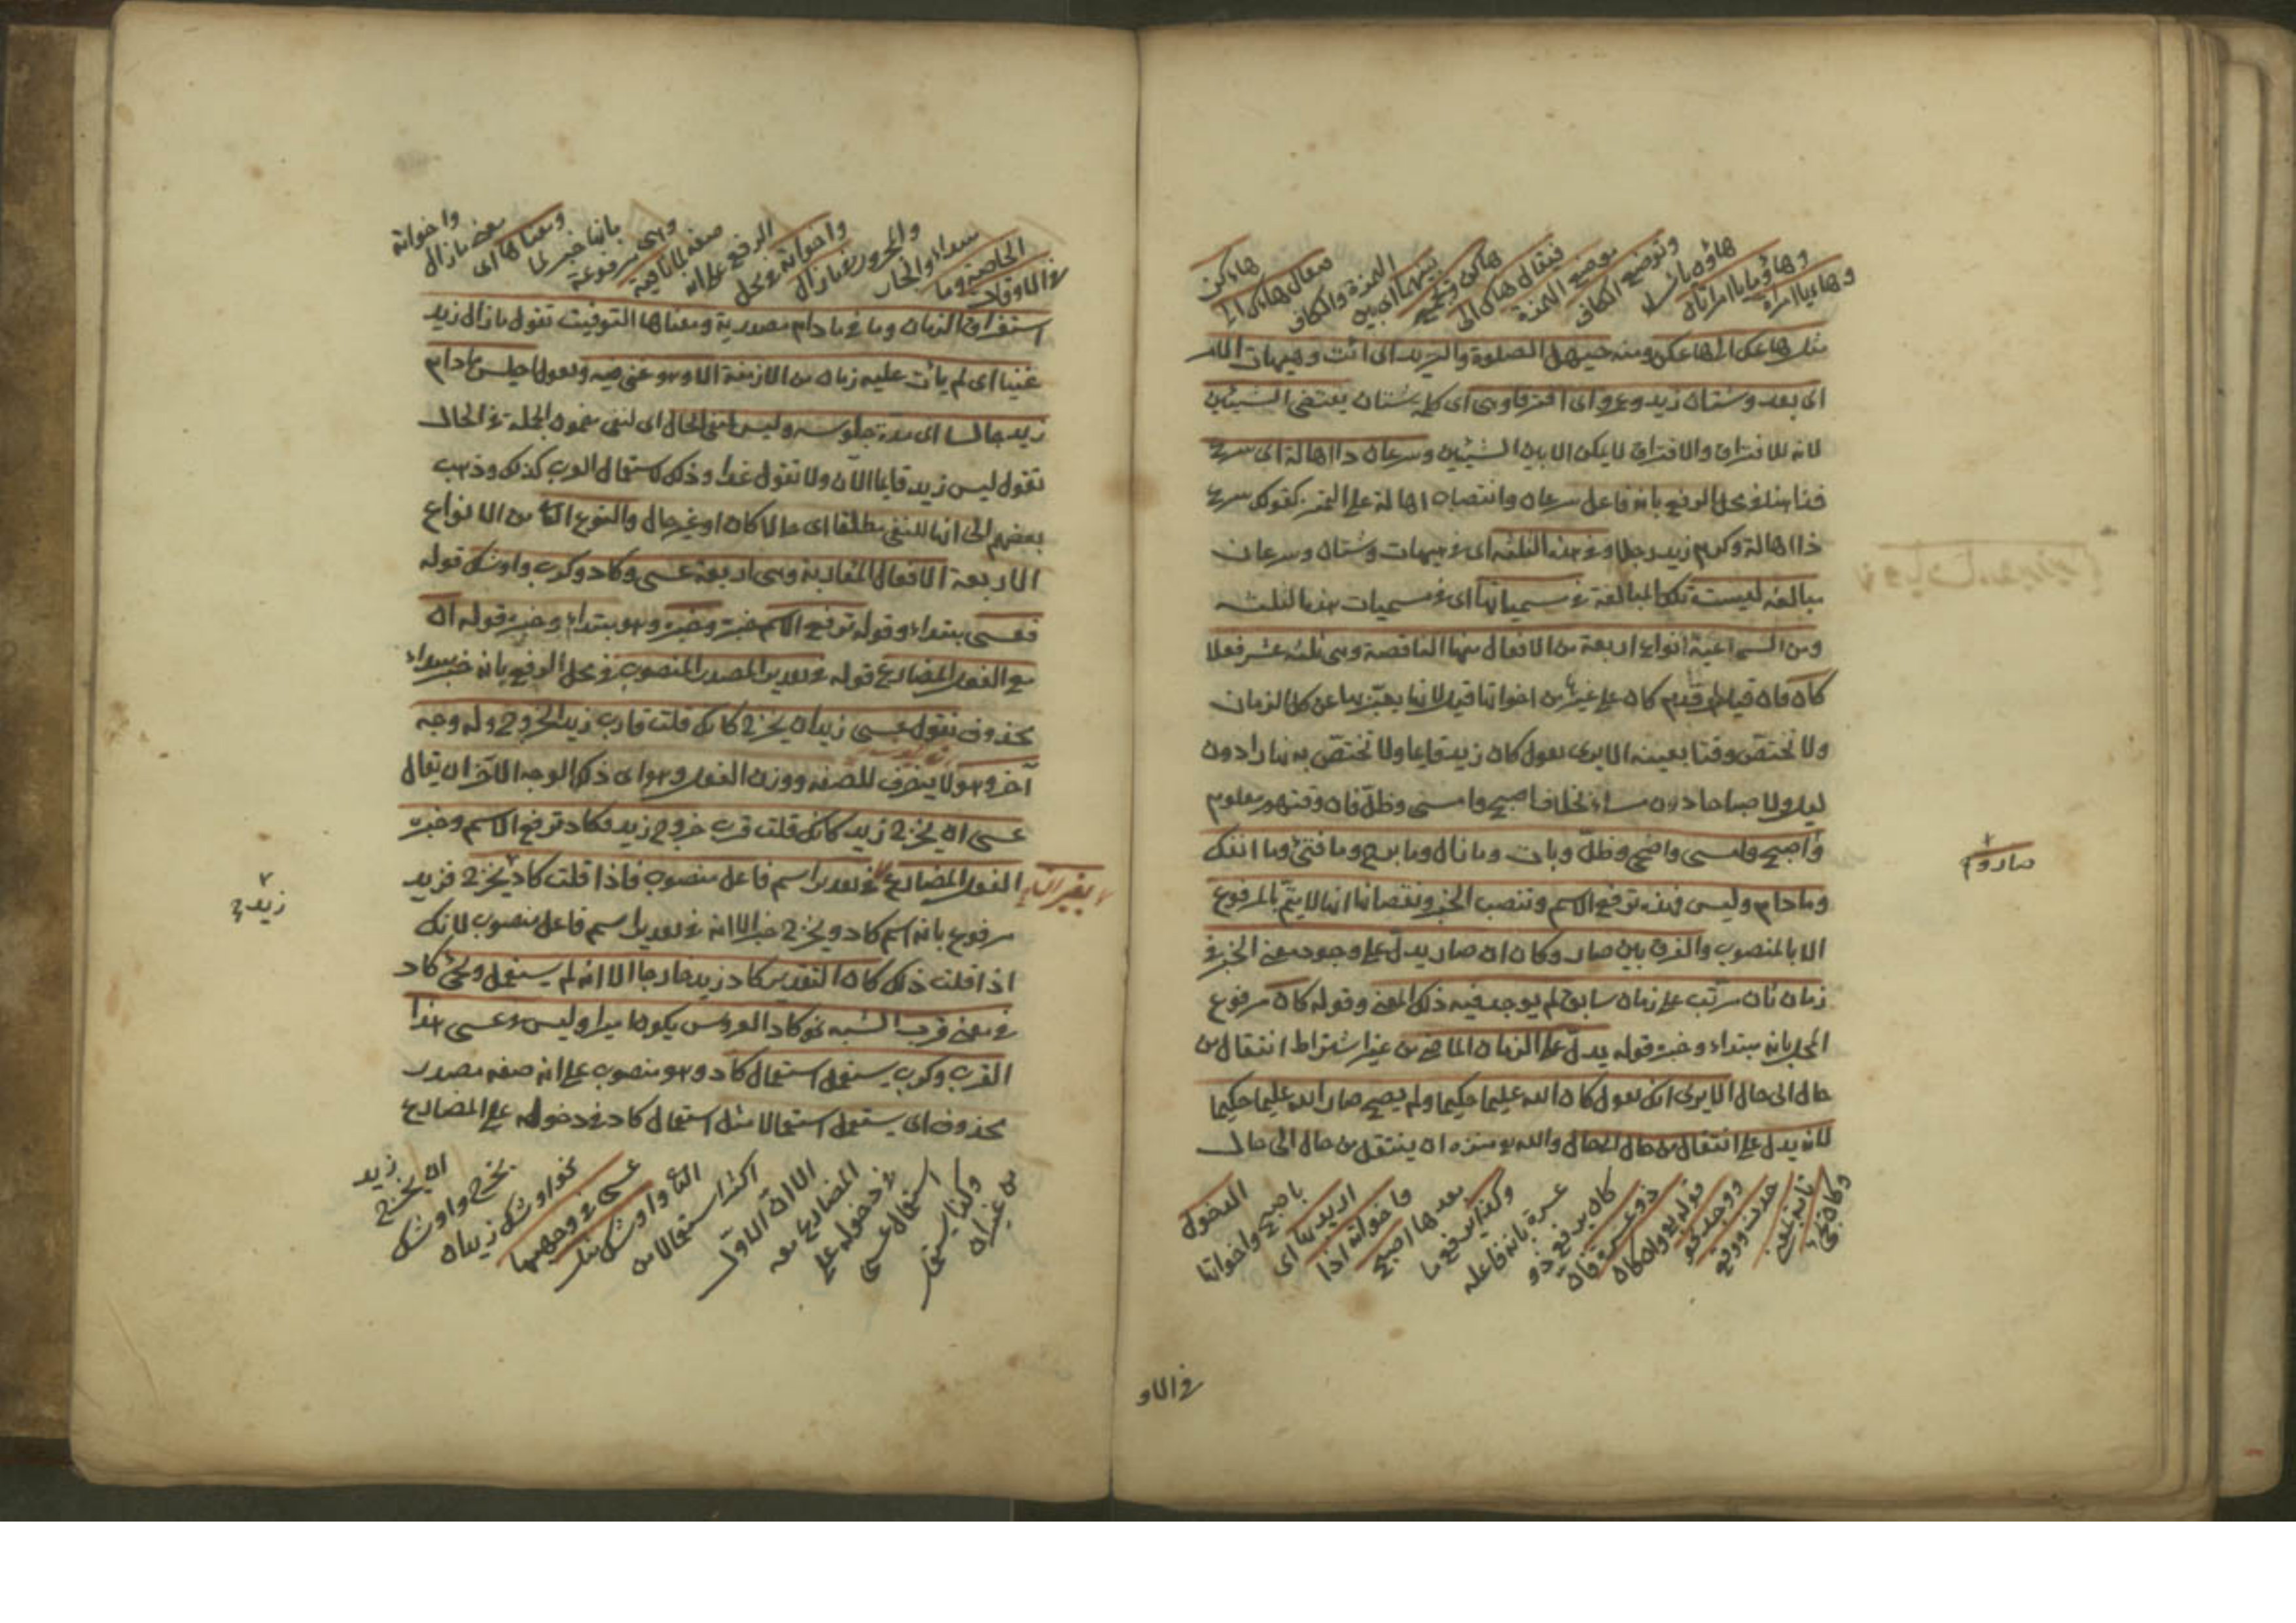 وهاء يا امرأة
وهاؤما يا امرأتان
هاؤن يا نساء
وتوضع الكاف
موضع الهمزة
فيقال هاك الى
هاكن ويجمع
بينهما اى بين
الهمزة والكاف
فيقال هاءك الى
هاءكن
مثل هاءك هاءكن ومنه حيهل الصلوة والثريد اى ائت وهيهات الامر
اى بعد وشتان زيد وعمرو اى افترقا وهى اى كلمة شتان يقتضى الشيئين
لانه للافتراق والافتراق لا يمكن الا بين الشيئين وسرعان ذا اهالة اى سرع
فذا هنا فى محل الرفع بانه فاعل سرعان وانتصاب اهالة على التمييز كقولك سرع
ذا اهالة وكرم زيد رجلا وفى هذه الثلثة اى فى هيهات وشتان وسرعان
مبالغة ليست تلك المبالغة فى مسمياتها اى فى مسميات هذه الثلثة
ومن السماعية انواع اربعة من الافعال منها الناقصة وهى ثلثة عشر فعلا
كان فان قيل لم قدم كان على غيره من اخواتها قيل لانها يعبر بها عن كل الزمان
ولا تختص وقتا بعينه الا يرى تقول كان زيد قائما ولا تختص به نهارا دون
ليل ولا صباحا دون مساء بخلاف اصبح وامسى وظل فان وقتهن معلوم
واصبح وامسى واضحى وظل وبات وما زال وما برح وما فتئ وما انفك
صار و
وما دام وليس وهذه ترفع الاسم وتنصب الخبر ونقصانها انها لا يتم بالمرفوع
الا بالمنصوب والفرق بين صار وكان ان صار يدل على وجود معنى الخبر فى
زمان ثان مرتب على زمان سابق لم يوجد فيه ذلك المعنى وقوله كان مرفوع
المحل بانه مبتداء وخبره قوله يدل على الزمان الماضى من غير اشتراط انتقال من
حال الى حال الا يرى انك تقول كان الله عليما حكيما ولم يصح صار الله عليما حكيما
لانه يدل على انتقال من حال الى حال والله هو منزه ان ينتقل من حال الى حال
وكان بمعنى
ثابت بمعنى
حدث ووقع
ووجد نحو
قوله تعالى وان كان
ذو عسرة فان
كان يرفع ذو
عسرة بانه فاعله
وكذا يرفع ما
بعدها اصبح
واخواته اذا
اريد بها اى
باصبح واخواتها
الدخول
فى الاو
فى الاوقات
الخاصة وما
مبتداء والجار
والمجرور ما زال
واخواته فى محل
الرفع على انه
صفة لما نافية
وهى مرفوعة
بانها خبر لما
ومعناها اى
معنى ما زال
واخواته
استغراق الزمان وما فى ما دام مصدرية ومعناها التوقيت تقول ما زال زيد
غنيا اى لم يأت عليه زمان من الازمنة الا وهو غنى فيه وتقول اجلس ما دام
زيد جالسا اى مدة جلوسه وليس لنفى الحال اى لنفى مضمون الجملة فى الحال
تقول ليس زيد قائما الآن ولا تقول غدا وذلك لاستعمال العرب كذلك وذهب
بعضهم الى انها للنفى مطلقا اى حالا كان او غير حال والنوع الثانى من الانواع
الاربعة الافعال المقاربة وهى اربعة عسى وكاد وكرب واوشك قوله
فعسى مبتداء وقوله ترفع الاسم خبره وخبره وهو مبتداء وخبره قوله ان
مع الفعل المضارع قوله فى تقدير المصدر المنصوب فى محل الرفع بانه خبر مبتداء
محذوف تقول عسى زيد ان يخرج كانك قلت قارب زيد الخروج وله وجه
آخر وهو لا ينصرف للصفة ووزن الفعل وهو اى ذلك الوجه الآخر ان يقال
عسى ان يخرج زيد كانك قلت قرب خروج زيد فكاد ترفع الاسم وخبره
بغير ان
الفعل المضارع فى تقدير اسم فاعل منصوب فاذا قلت كاد يخرج فزيد
زيد
مرفوع بانه اسم كاد ويخرج خبر الا انه فى تقدير اسم فاعل منصوب لانك
اذا قلت ذلك كان التقدير كاد زيد خارجا الا انه لم يستعمل ويجئ كاد
فى معنى قرب الشبه نحو كاد العروس يكون اميرا وليس فى عسى هذا
القرب وكرب يستعمل استعمال كاد وهو منصوب على انه صفة مصدر
محذوف اى يستعمل استعمالا مثل استعمال كاد فى دخوله على المضارع
من غير ان
وكذا يستعمل
استعمال عسى
فى دخوله على
المضارع معه
الا ان الاول
اكثر استعمالا من
الثانى واوشك مثل
عسى فى وجهيها
نحو اوشك زيد ان
يخرج واوشك
ان يخرج
زيد